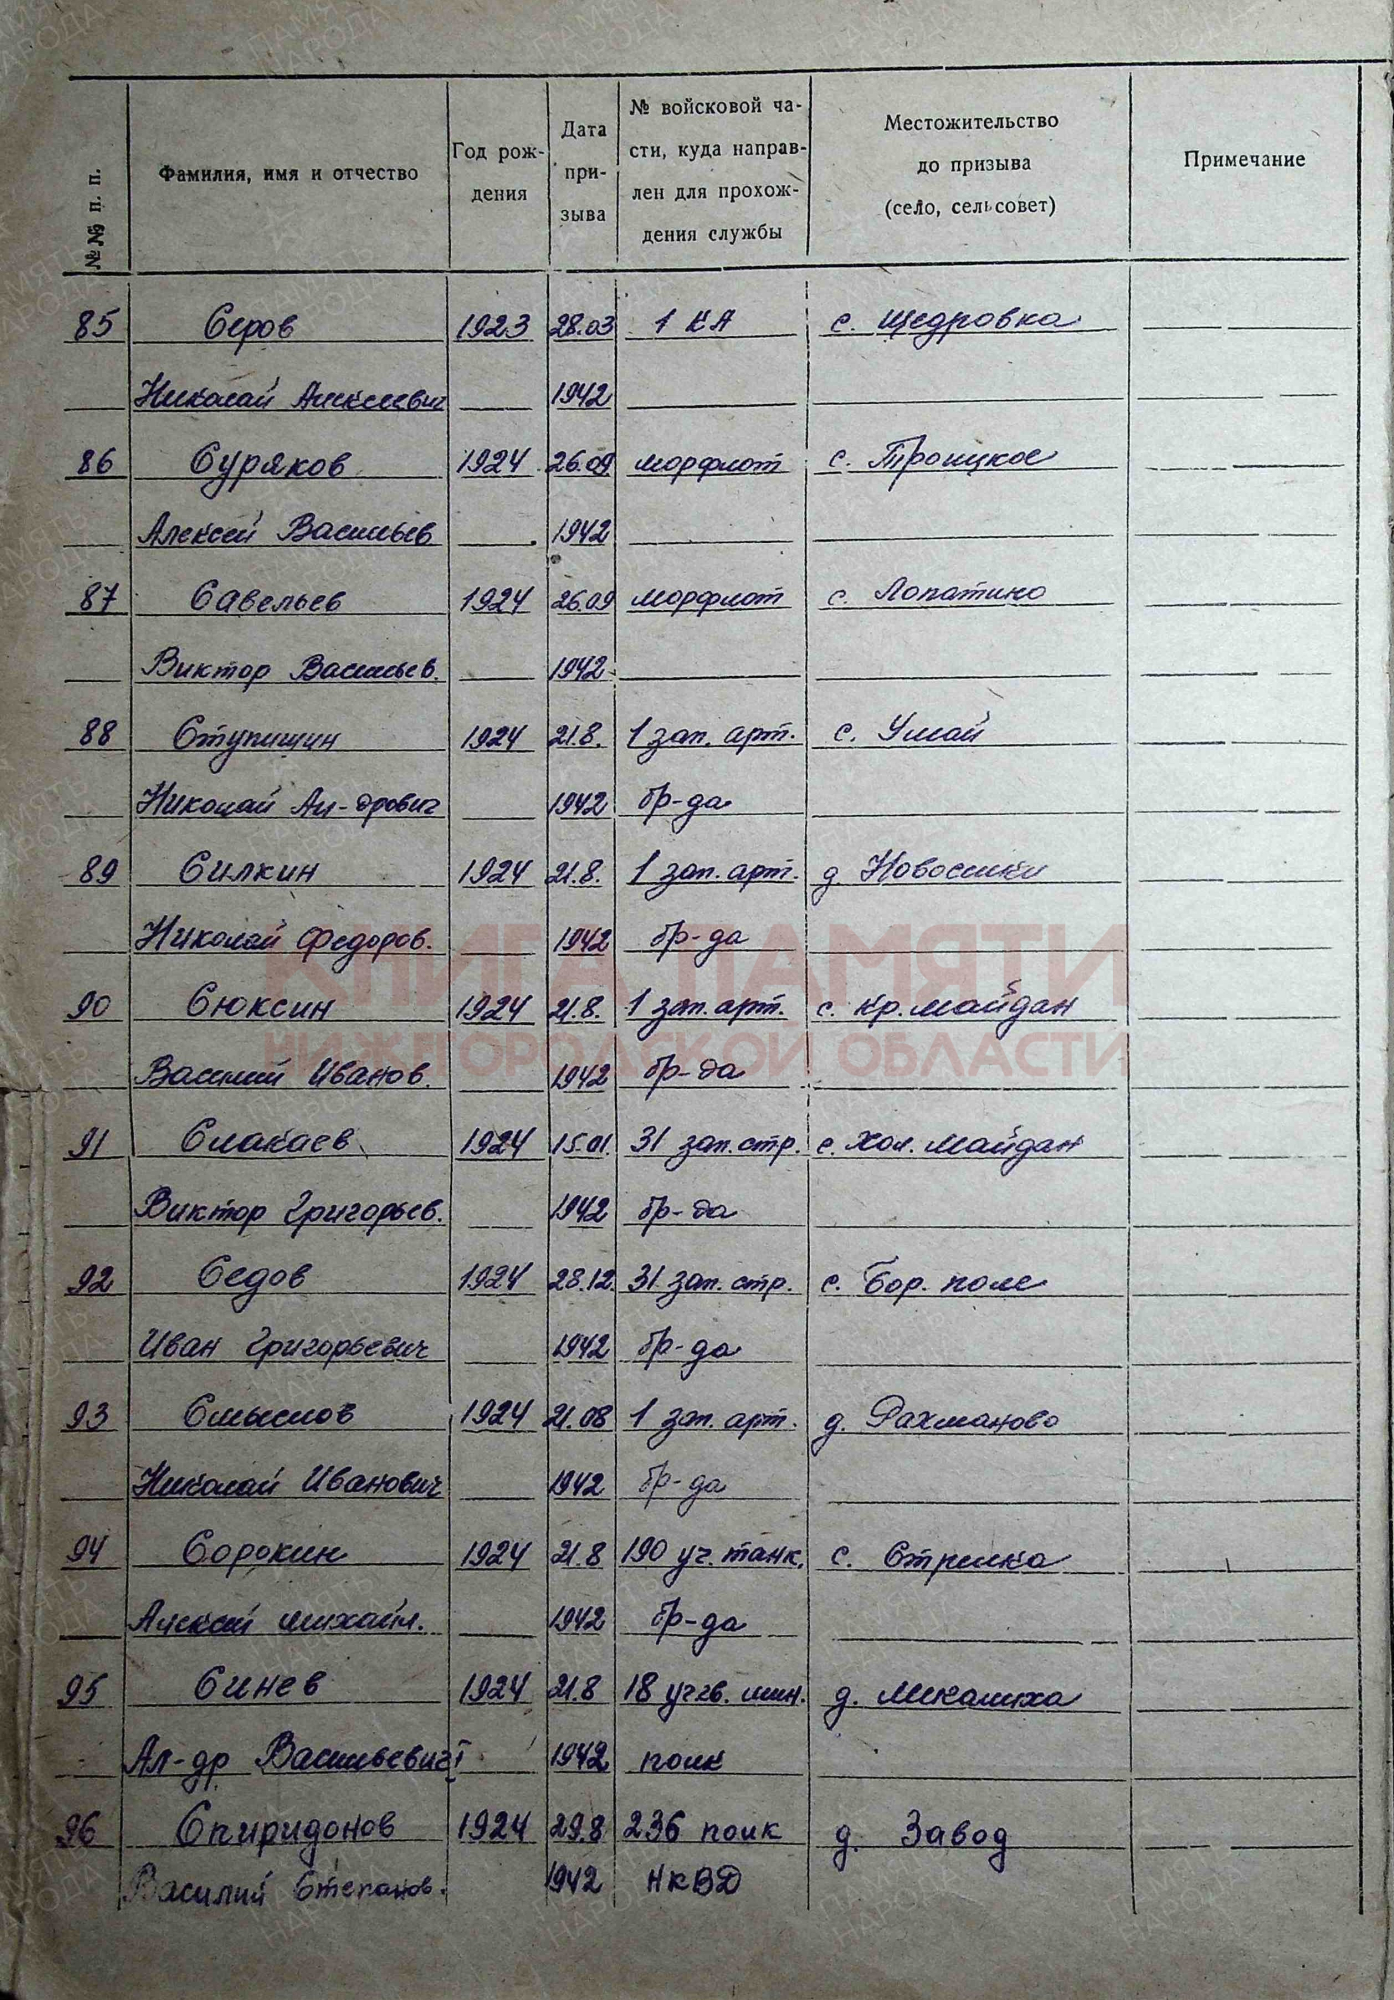 №№ п. п.
Фамилия, имя и отчество
Год рож-
дения
Дата
при-
зыва
№ войсковой ча-
сти, куда направ-
лен для прохож-
дения службы
Местожительство
до призыва
(село, сельсовет)
Примечание
85 Серов 1923 28.03 1 КА с. Щедровка
Николай Алексеевич 1942
86 Суряков 1924 26.09 морфлот с. Троицкое
Алексей Васильев 1942
87 Савельев 1924 26.09 морфлот с. Лопатино
Виктор Васильев. 1942
88 Ступишин 1924 21.8. 1 зап. арт. с. Умай
Николай Ал-дрович 1942 бр-да
89 Силкин 1924 21.8. 1 зап. арт. д. Новоселки
Николай Федоров. 1942 бр-да
90 Сюксин 1924 21.8. 1 зап. арт. с. Кр. Майдан
Василий Иванов. 1942 бр-да
91 Слакаев 1924 15.01. 31 зап. стр. с. Хол. Майдан
Виктор Григорьев. 1942 бр-да
92 Седов 1924 28.12. 31 зап. стр. с. Бор. поле
Иван Григорьевич 1942 бр-да
93 Смыслов 1924 21.08 1 зап. арт. д. Рахманово
Николай Иванович 1942 бр-да
94 Сорокин 1924 21.8 190 уч. танк. с. Стрелка
Алексей Михайл. 1942 бр-да
95 Синев 1924 21.8 18 уч. гв. мин. д. Мекалиха
Ал-др Васильевич 1942 полк
96 Спиридонов 1924 29.8 236 полк д. Завод
Василий Степанов. 1942 НКВД
КНИГА ПАМЯТИ
НИЖЕГОРОДСКОЙ ОБЛАСТИ
ПАМЯТЬ
НАРОДА